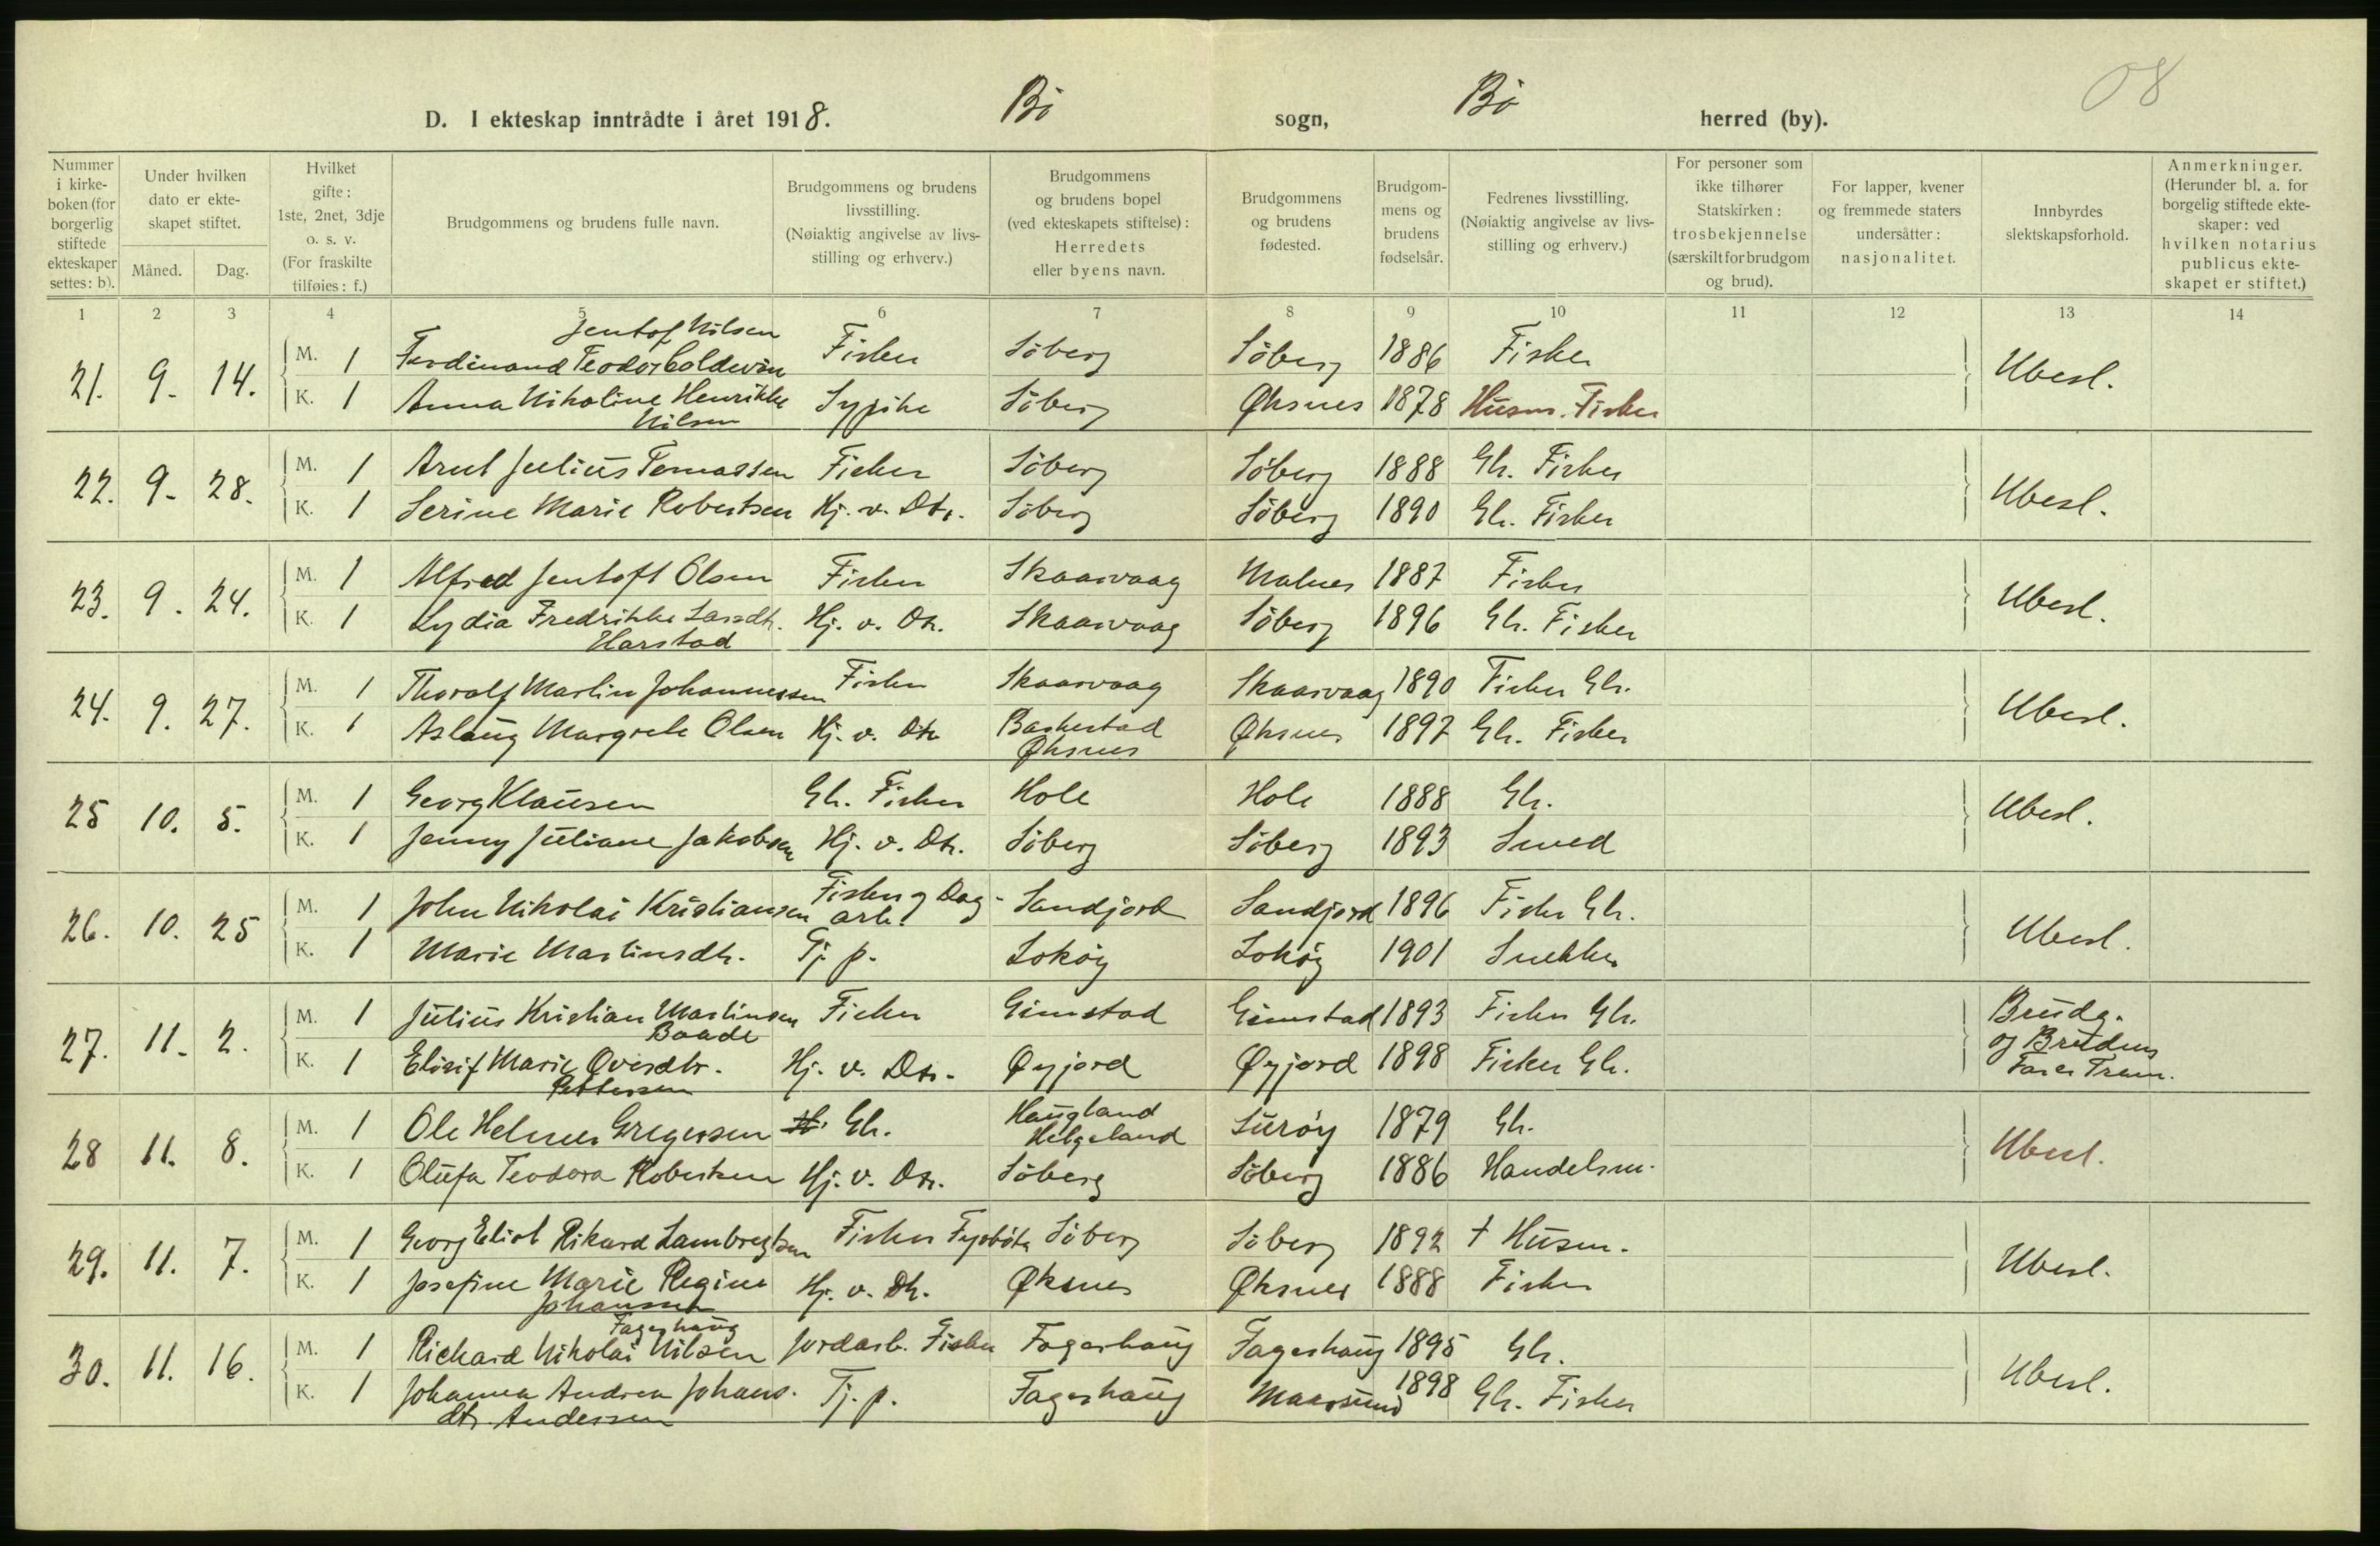 08
D. I ekteskap inntrådte i året 1918. Bø sogn, Bø herred (by).
Nummer i kirkeboken (for borgerlig stiftede ekteskaper settes: b).
Under hvilken dato er ekteskapet stiftet.
Måned. Dag.
Hvilket gifte: 1ste, 2net, 3dje o. s. v. (For fraskilte tilføies: f.)
Brudgommens og brudens fulle navn.
Brudgommens og brudens livsstilling. (Nøiaktig angivelse av livsstilling og erhverv.)
Brudgommens og brudens bopel (ved ekteskapets stiftelse): Herredets eller byens navn.
Brudgommens og brudens fødested.
Brudgommens og brudens fødselsår.
Fedrenes livsstilling. (Nøiaktig angivelse av livsstilling og erhverv.)
For personer som ikke tilhører Statskirken: trosbekjennelse (særskilt for brudgom og brud).
For lapper, kvener og fremmede staters undersåtter: nasjonalitet.
Innbyrdes slektskapsforhold.
Anmerkninger. (Herunder bl. a. for borgelig stiftede ekteskaper: ved hvilken notarius publicus ekteskapet er stiftet.)
1 2 3 4 5 6 7 8 9 10 11 12 13 14
Jentof Nilsen
21. 9. 14. M. 1 Ferdinand Teodor Boldevin Fisker Söberg Söberg 1886 Fisker Ubesl.
K. 1 Anna Nikoline Henrikke Nilsen Sypike Söberg Øksnes 1878 Husm. Fisker
22. 9. 28. M. 1 Arnt Julius Tomassen Fisker Söberg Söberg 1888 Gbr. Fisker Ubesl.
K. 1 Serine Marie Robertsen Hj. v. Dtr. Söberg Söberg 1890 Gbr. Fisker
23. 9. 24. M. 1 Alfred Jentoft Olsen Fisker Skaarvaag Malnes 1887 Fisker Ubesl.
K. 1 Lydia Fredrikke Larsdtr. Harstad Hj. v. Dtr. Skaarvaag Söberg 1896 Gbr. Fisker
24. 9. 27. M. 1 Thoralf Martin Johannessen Fisker Skaarvaag Skaarvaag 1890 Fisker Gbr. Ubesl.
K. 1 Aslaug Margrete Olsen Hj. v. Dtr Barkestad Øksnes Øksnes 1897 Gbr. Fisker
25 10. 5. M. 1 Georg Klausen Gbr. Fisker Hole Hole 1888 Gbr. Ubesl.
K. 1 Jenny Juliane Jakobsen Hj. v. Dtr. Söberg Söberg 1893 Smed
26. 10. 25 M. 1 John Nikolai Kristiansen Fisker og Dagarb. Sandjord Sandjord 1896 Fisker Gbr. Ubesl.
K. 1 Marie Martinsdtr. Tj. p. Lokøy Lokøy 1901 Snekker
27. 11. 2. M. 1 Julius Kristian Martinsen Baade Fisker Gimstad Gimstad 1893 Fisker Gbr. Brudg. og Brudens Far er Frem.
K. 1 Elisif Marie Oversdtr. Pettersen Hj. v. Dtr. Øyjord Øyjord 1898 Fisker Gbr.
28 11. 8. M. 1 Ole Helmer Gregersen Gbr. Haugland Helgeland Luröy 1879 Gbr. Ubesl.
K. 1 Olufa Teodora Robertsen Hj. v. Dtr. Söberg Söberg 1886 Handelsm.
29. 11. 7. M. 1 Georg Eliot Rikard Lambregtsen Fisker Fyrböter Söberg Söberg 1892 † Husm. Ubesl.
K. 1 Josefine Marie Regine Johansen Hj. v. Dtr. Øksnes Øksnes 1888 Fisker
Fagerhaug
30. 11. 16. M. 1 Richard Nikolai Nilsen Jordarb. Fisker Fagerhaug Fagerhaug 1895 Gbr. Ubesl.
K. 1 Johanna Andrea Johans. dtr. Andersen Tj. p. Fagerhaug Maarsund 1898 Gbr. Fisker